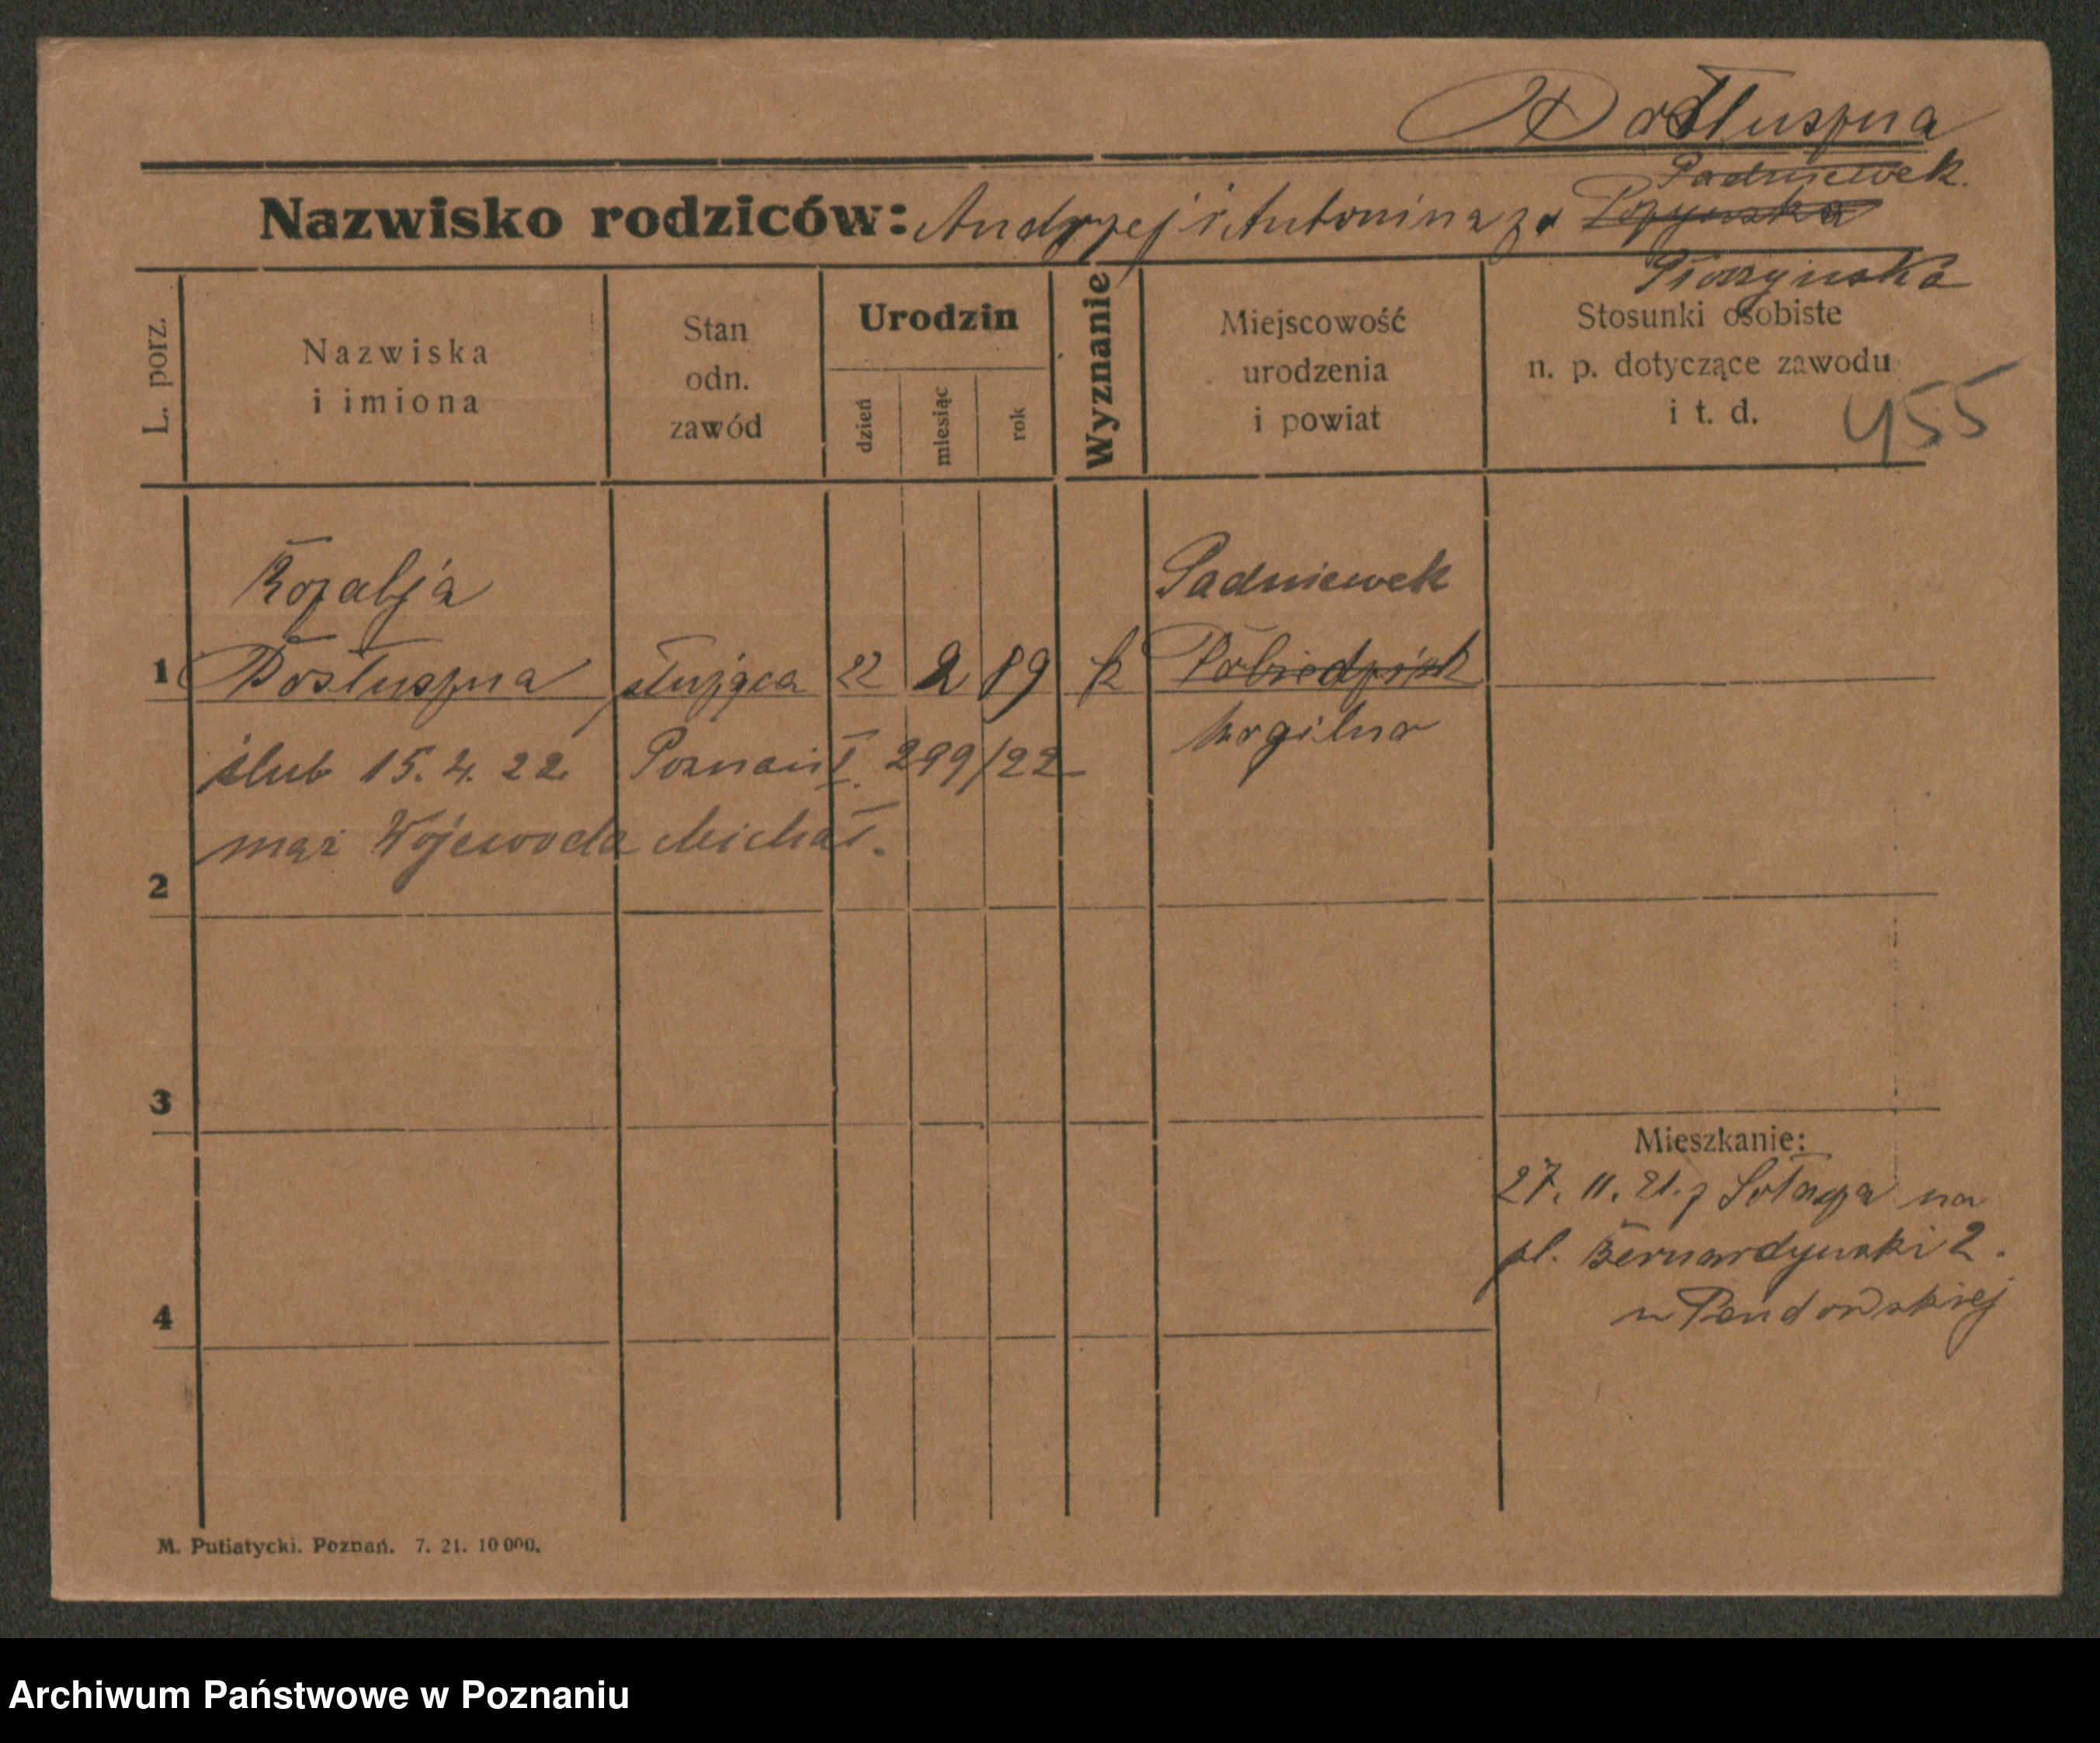 Dosłuszna
Padniewek.
Nazwisko rodziców: Andrzej i Antonina zd
Płoszyńska
L. porz.
Nazwiska
i imiona
Stan
odn.
zawód
Urodzin
dzień
miesiąc
rok
Wyznanie
Miejscowość
urodzenia
i powiat
Stosunki osobiste
n. p. dotyczące zawodu
i t. d.
455
Rozalja Padniewek
1 Posłuszna służąca 22 2 89 k Pobiedzisk
ślub 15. 4. 22. Poznań I. 299/22 Mogilno
mąż Wojewoda Michał.
2
3
Mieszkanie:
27. 11. 21. z Sołacza na
pl. Bernardyński 2.
4
M. Putiatycki. Poznań. 7. 21. 10 000.
Archiwum Państwowe w Poznaniu